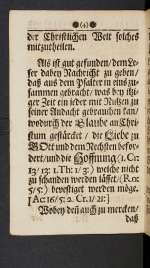 (4)
der Christlichen Welt solches
mitzutheilen.
Als ist gut gefunden / dem Le-
ser dabey Nachricht zu geben /
daß aus dem Psalter in eins zu-
sammen gebracht / was bey itzi-
ger Zeit ein jeder mit Nutzen zu
seiner Andacht gebrauchen kan /
wodurch der Glaube an Chri-
stum gestärcket / die Liebe zu
GOtt und dem Nechsten befor-
dert / und die Hoffnung (1. Cr:
13 / 13: 1. Th: 1 / 3:) welche nicht
zu schanden werden lässet / (Ro:
5 / 5:) bevestiget werden möge.
[Ac: 16 / 5: 2. Cr. 1 / 21:]
Wobey deñ auch zu mercken /
daß